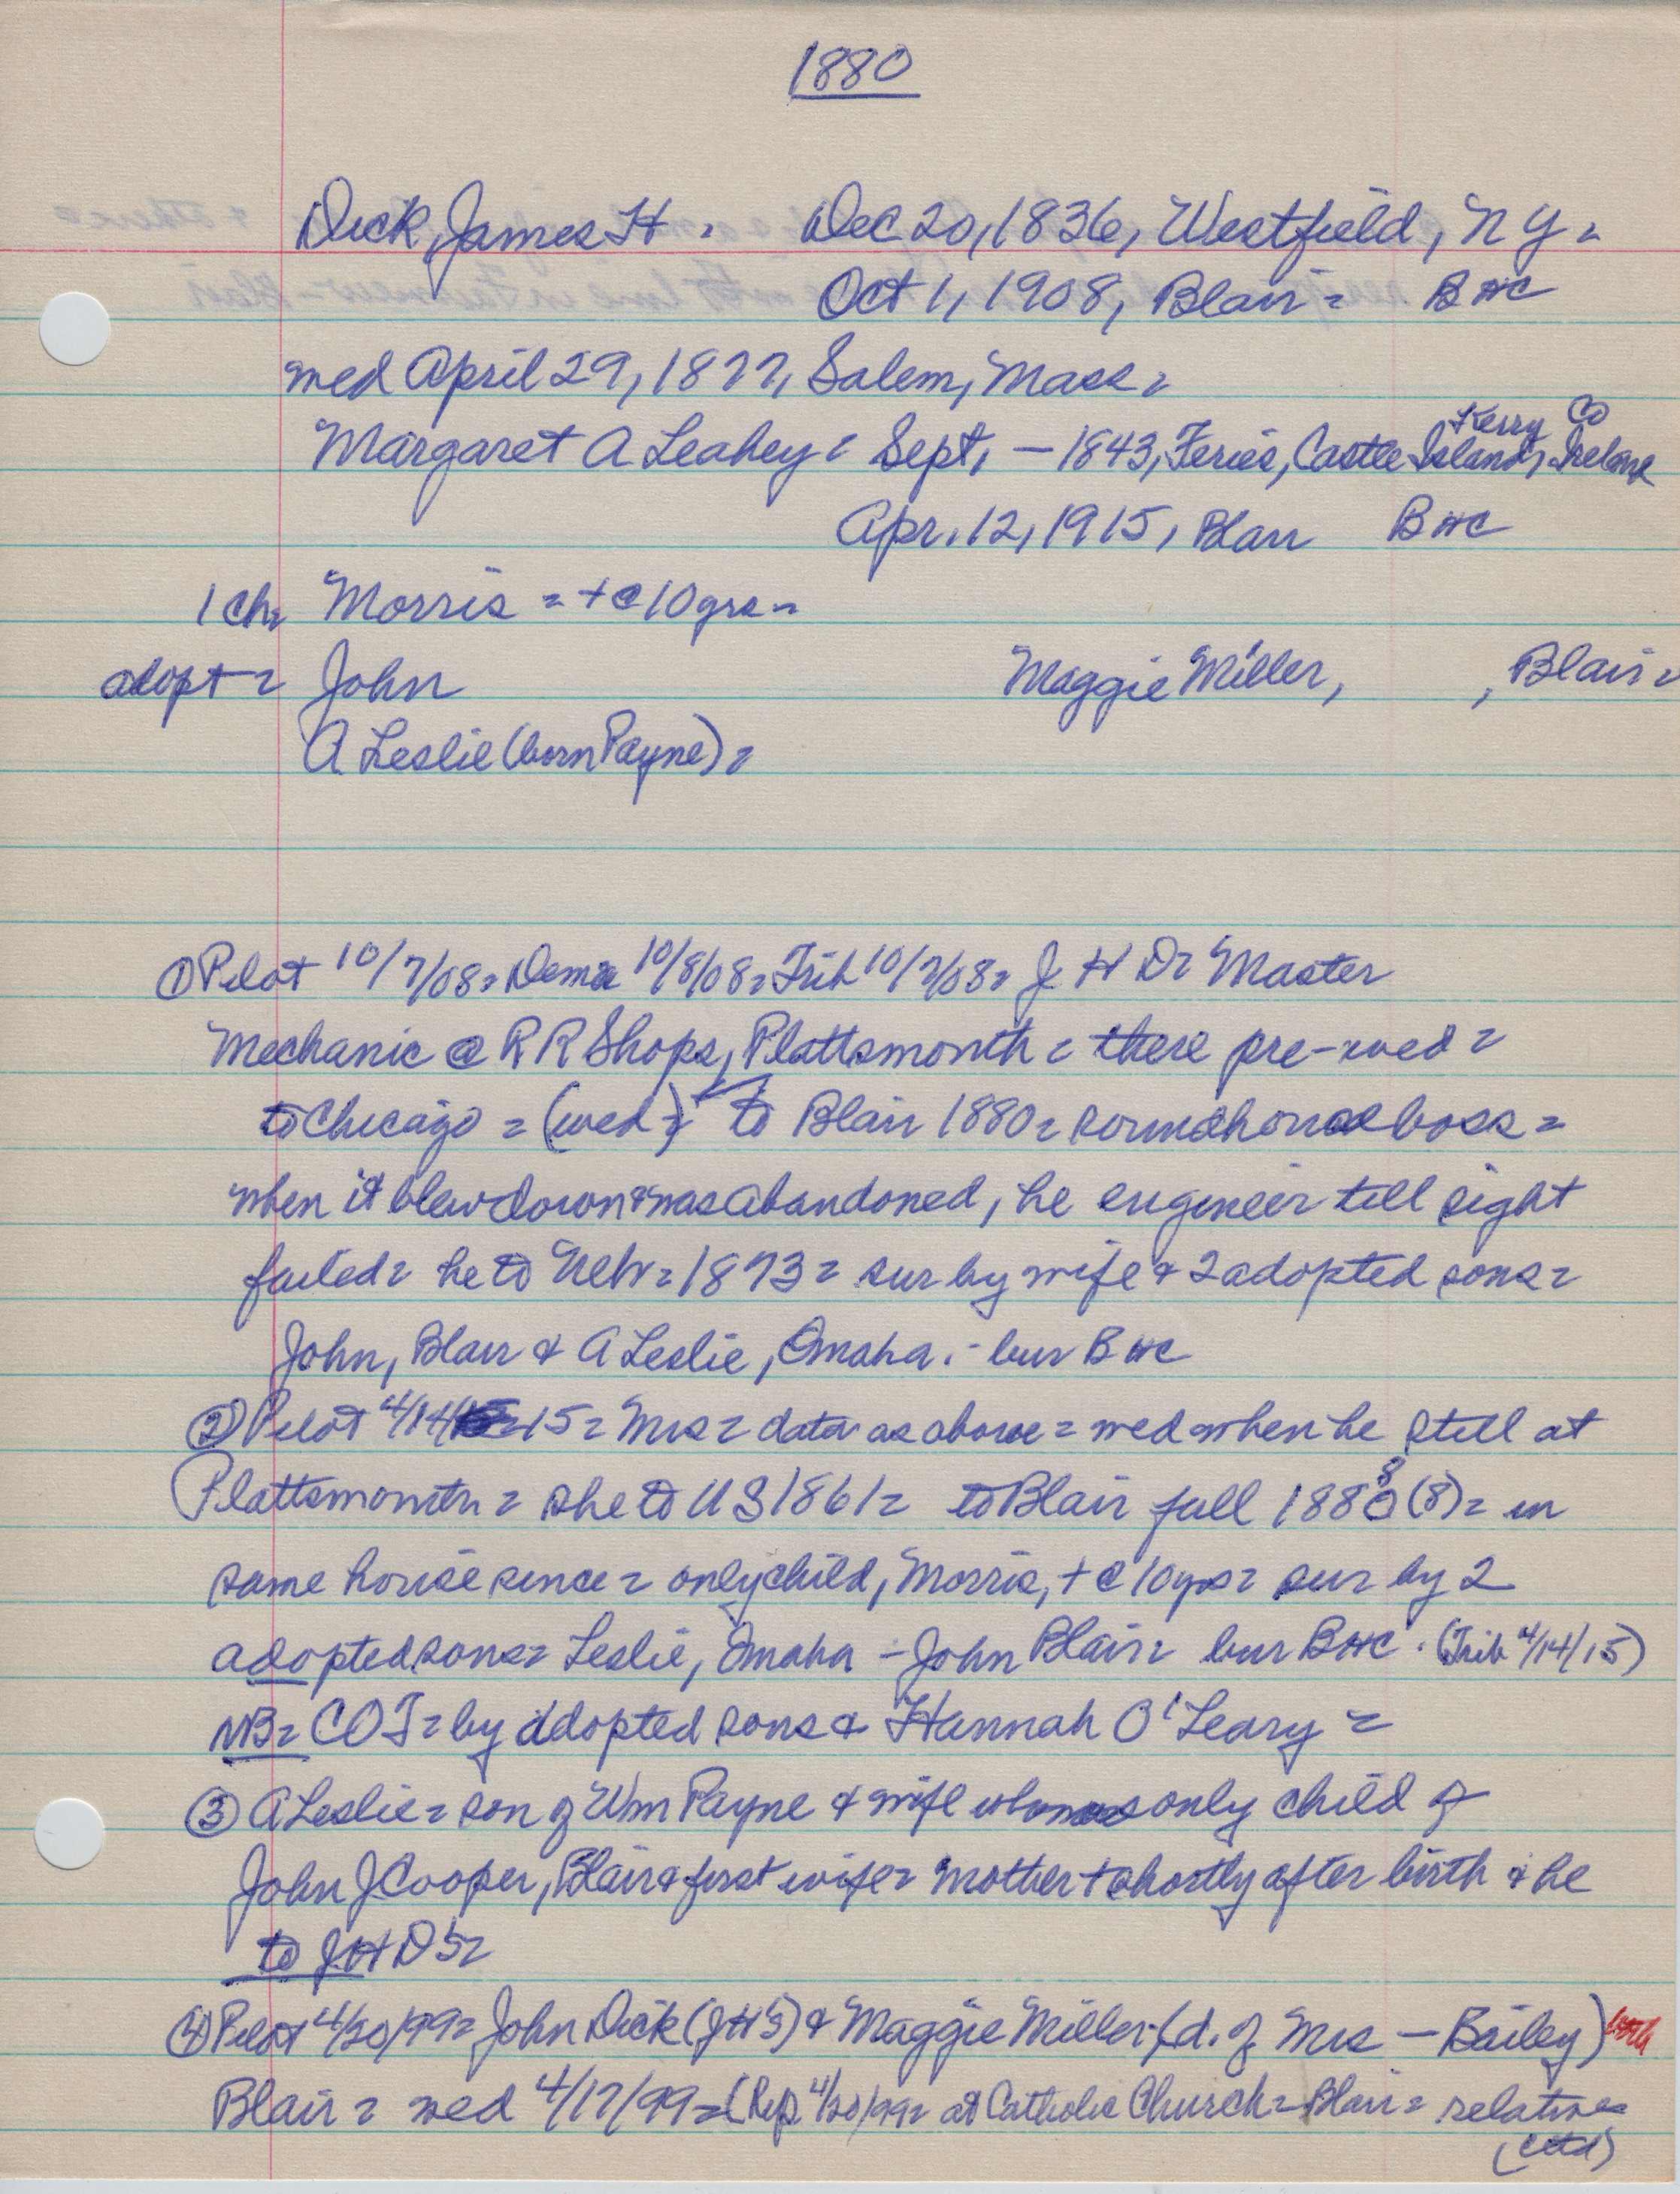 1880
Dick, James H = Dec 20, 1836, Westfield, NY =
Oct 1, 1908, Blair = BHC
wed April 29, 1877, Salem, Mass =
Kerry Co
Margaret A Leahey = Sept, — 1843, Feries, Castle Island, Ireland
Apr. 12, 1915, Blair BHC
1 ch = Morris = + @ 10 yrs =
adopt = John Maggie Miller, , Blair =
A Leslie (born Payne) =
① Pilot 10/7/08 = Dem 10/8/08 = Trib 10/7/08 = J H D = Master
Mechanic @ RR Shops, Plattsmouth = there pre-wed =
to Chicago = (wed) = to Blair 1880 = roundhouse boss =
when it blew down & was abandoned, he engineer till sight
failed = he to Neb = 1873 = sur by wife & 2 adopted sons =
John, Blair & A Leslie, Omaha. - bur BHC
② Pilot 4/14/15 = Mrs = data as above = wed when he still at
Plattsmouth = she to US 1861 = to Blair fall 1880 (8) = in
same house since = only child, Morris, + @ 10 yrs = sur by 2
adopted sons = Leslie, Omaha - John Blair = bur BHC. (Trib 4/14/15)
NB = COT = by adopted sons & Hannah O'Leary =
③ A Leslie = son of Wm Payne & wife who was only child of
John J Cooper, Blair & first wife = Mother + shortly after birth & he
to JHD's =
④ Pilot 4/20/99 = John Dick (JH's) & Maggie Miller (d. of Mrs — Bailey)
Blair = wed 4/17/99 = (Rep. 4/20/99 = at Catholic Church = Blair = relatives
(ctd)